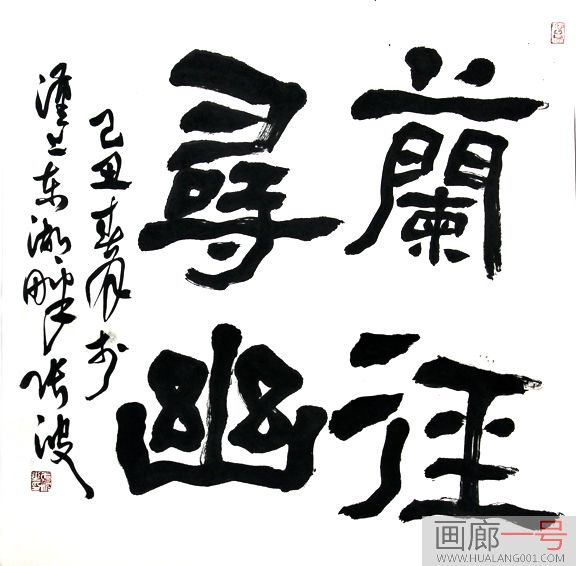 蘭往
尋幽
己丑春月於
漢上东湖畔张波
画廊一号
WWW.HUALANG001.COM